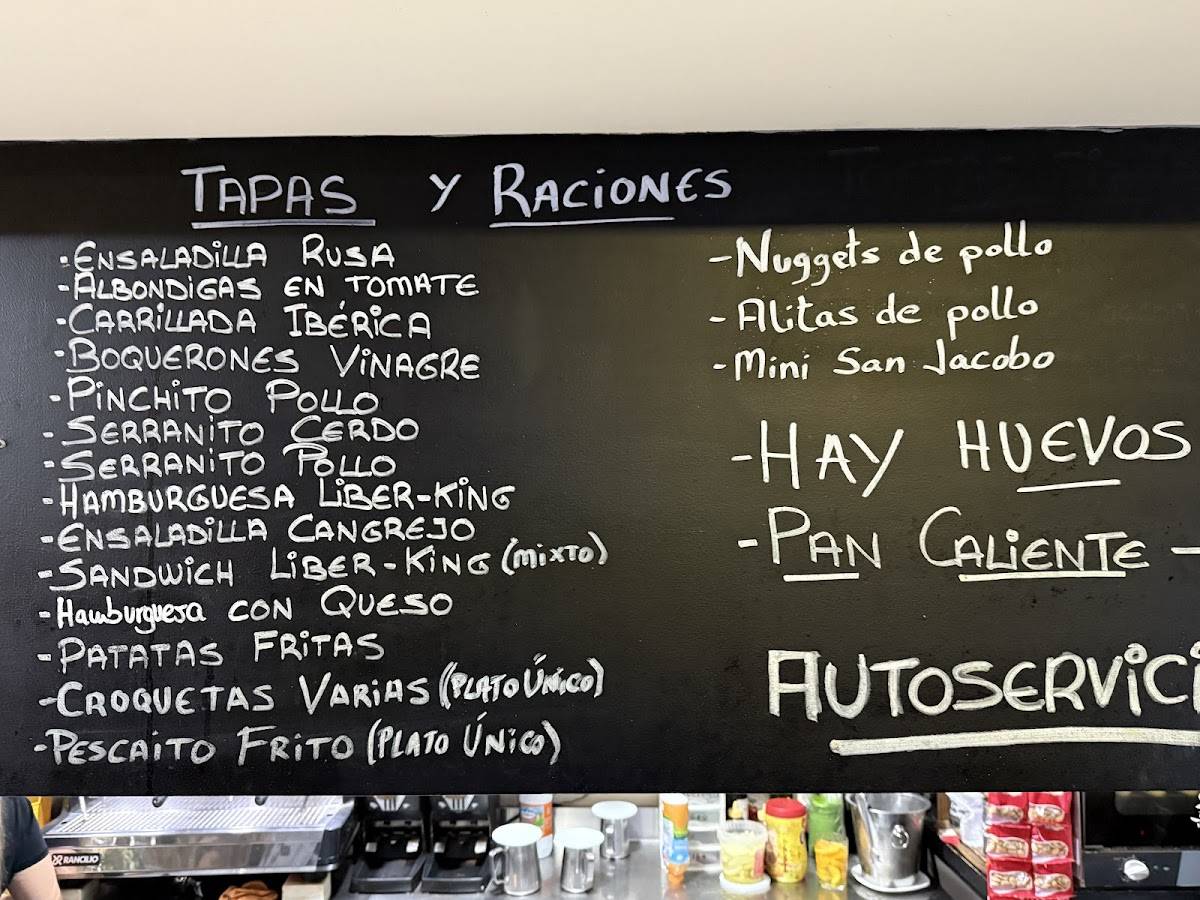 TAPAS Y RACIONES
·ENSALADILLA RUSA
-ALBONDIGAS EN TOMATE
·CARRILLADA IBÉRICA
-BOQUERONES VINAGRE
-PINCHITO POLLO
-SERRANITO CERDO
-SERRANITO POLLO
-HAMBURGUESA LIBER-KING
-ENSALADILLA CANGREJO
-SANDWICH LIBER-KING (MIXTO)
-Hamburguesa CON QUESO
-PATATAS FRITAS
-CROQUETAS VARIAS (PLATO ÚNICO)
-PESCAITO FRITO (PLATO ÚNICO)
-Nuggets de pollo
-Alitas de pollo
-Mini San Jacobo
-HAY HUEVOS
-PAN CALIENTE -
AUTOSERVICI
RANCILIO